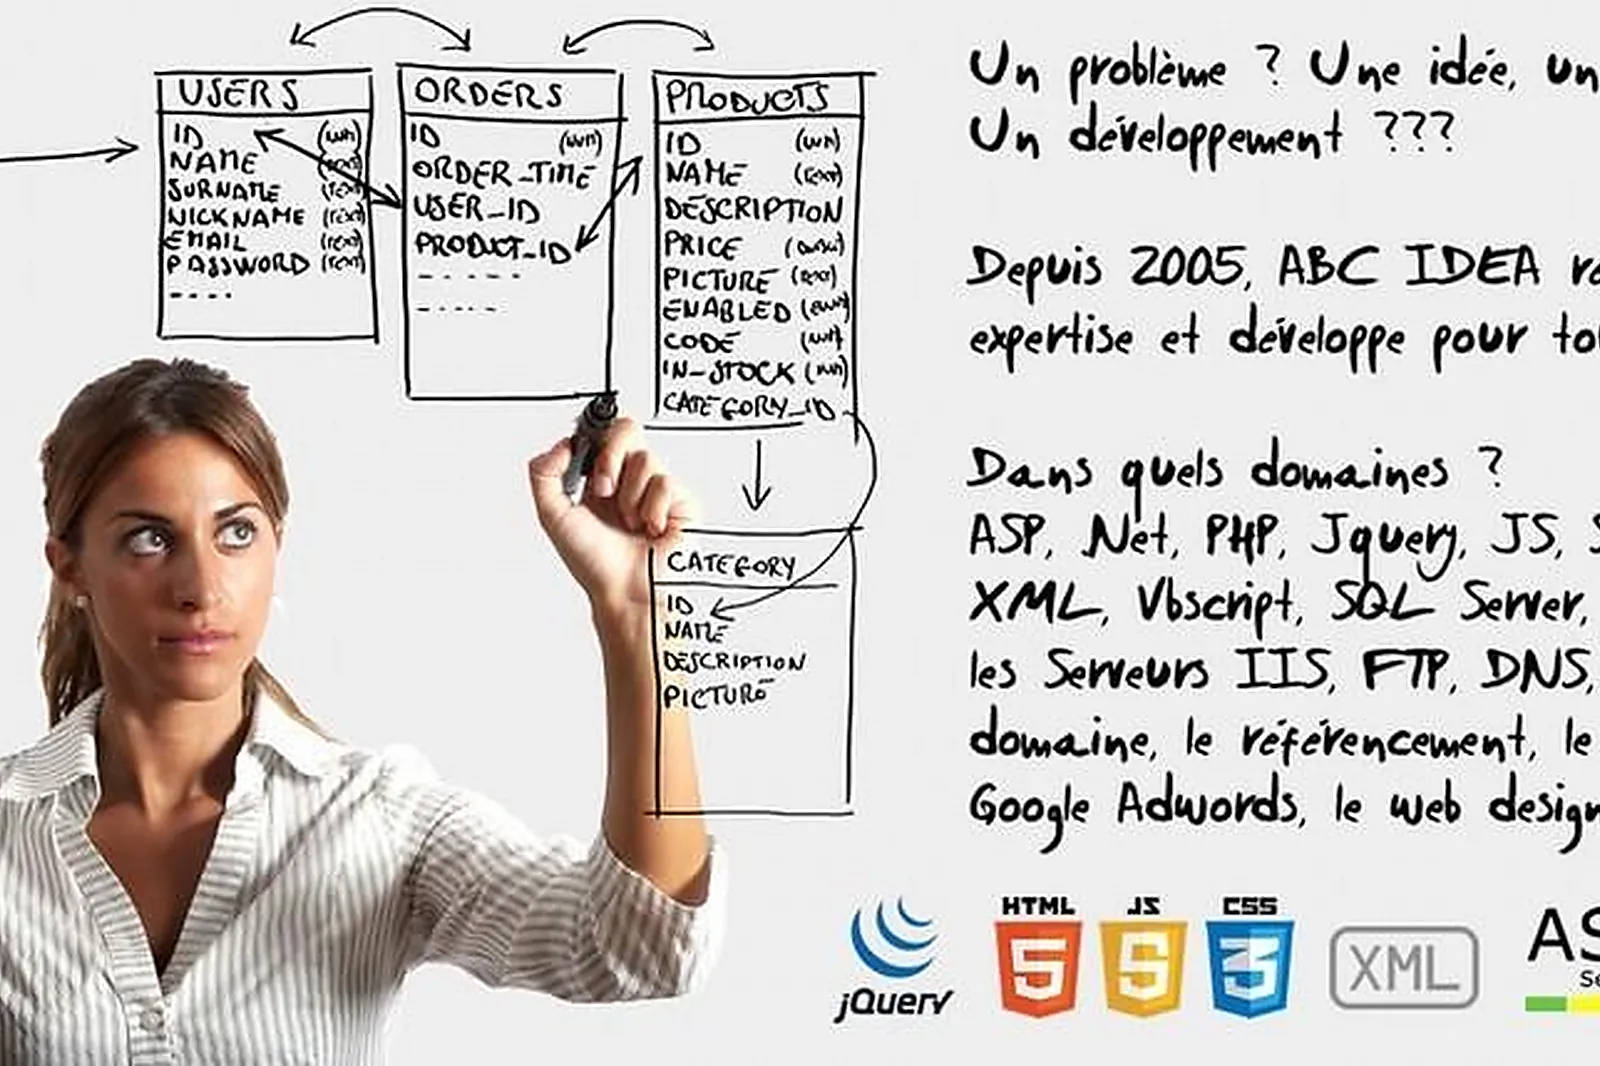 USERS
ID (num)
NAME (text)
SURNAME (text)
NICKNAME (text)
EMAIL (text)
PASSWORD (text)
ORDERS
ID (num)
ORDER_TIME
USER_ID
PRODUCT_ID
PRODUCTS
ID (num)
NAME (text)
DESCRIPTION
PRICE
PICTURE (text)
ENABLED
CODE
IN_STOCK (num)
CATEGORY_ID
CATEGORY
ID
NAME
DESCRIPTION
PICTURE
Un problème ? Une idée, un
Un développement ???
Depuis 2005, ABC IDEA
expertise et développe pour
Dans quels domaines ?
ASP, .Net, PHP, Jquery, JS,
XML, Vbscript, SQL Server,
les Serveurs IIS, FTP, DNS,
domaine, le référencement, le
Google Adwords, le web design
jQuery
HTML 5
JS
CSS 3
XML